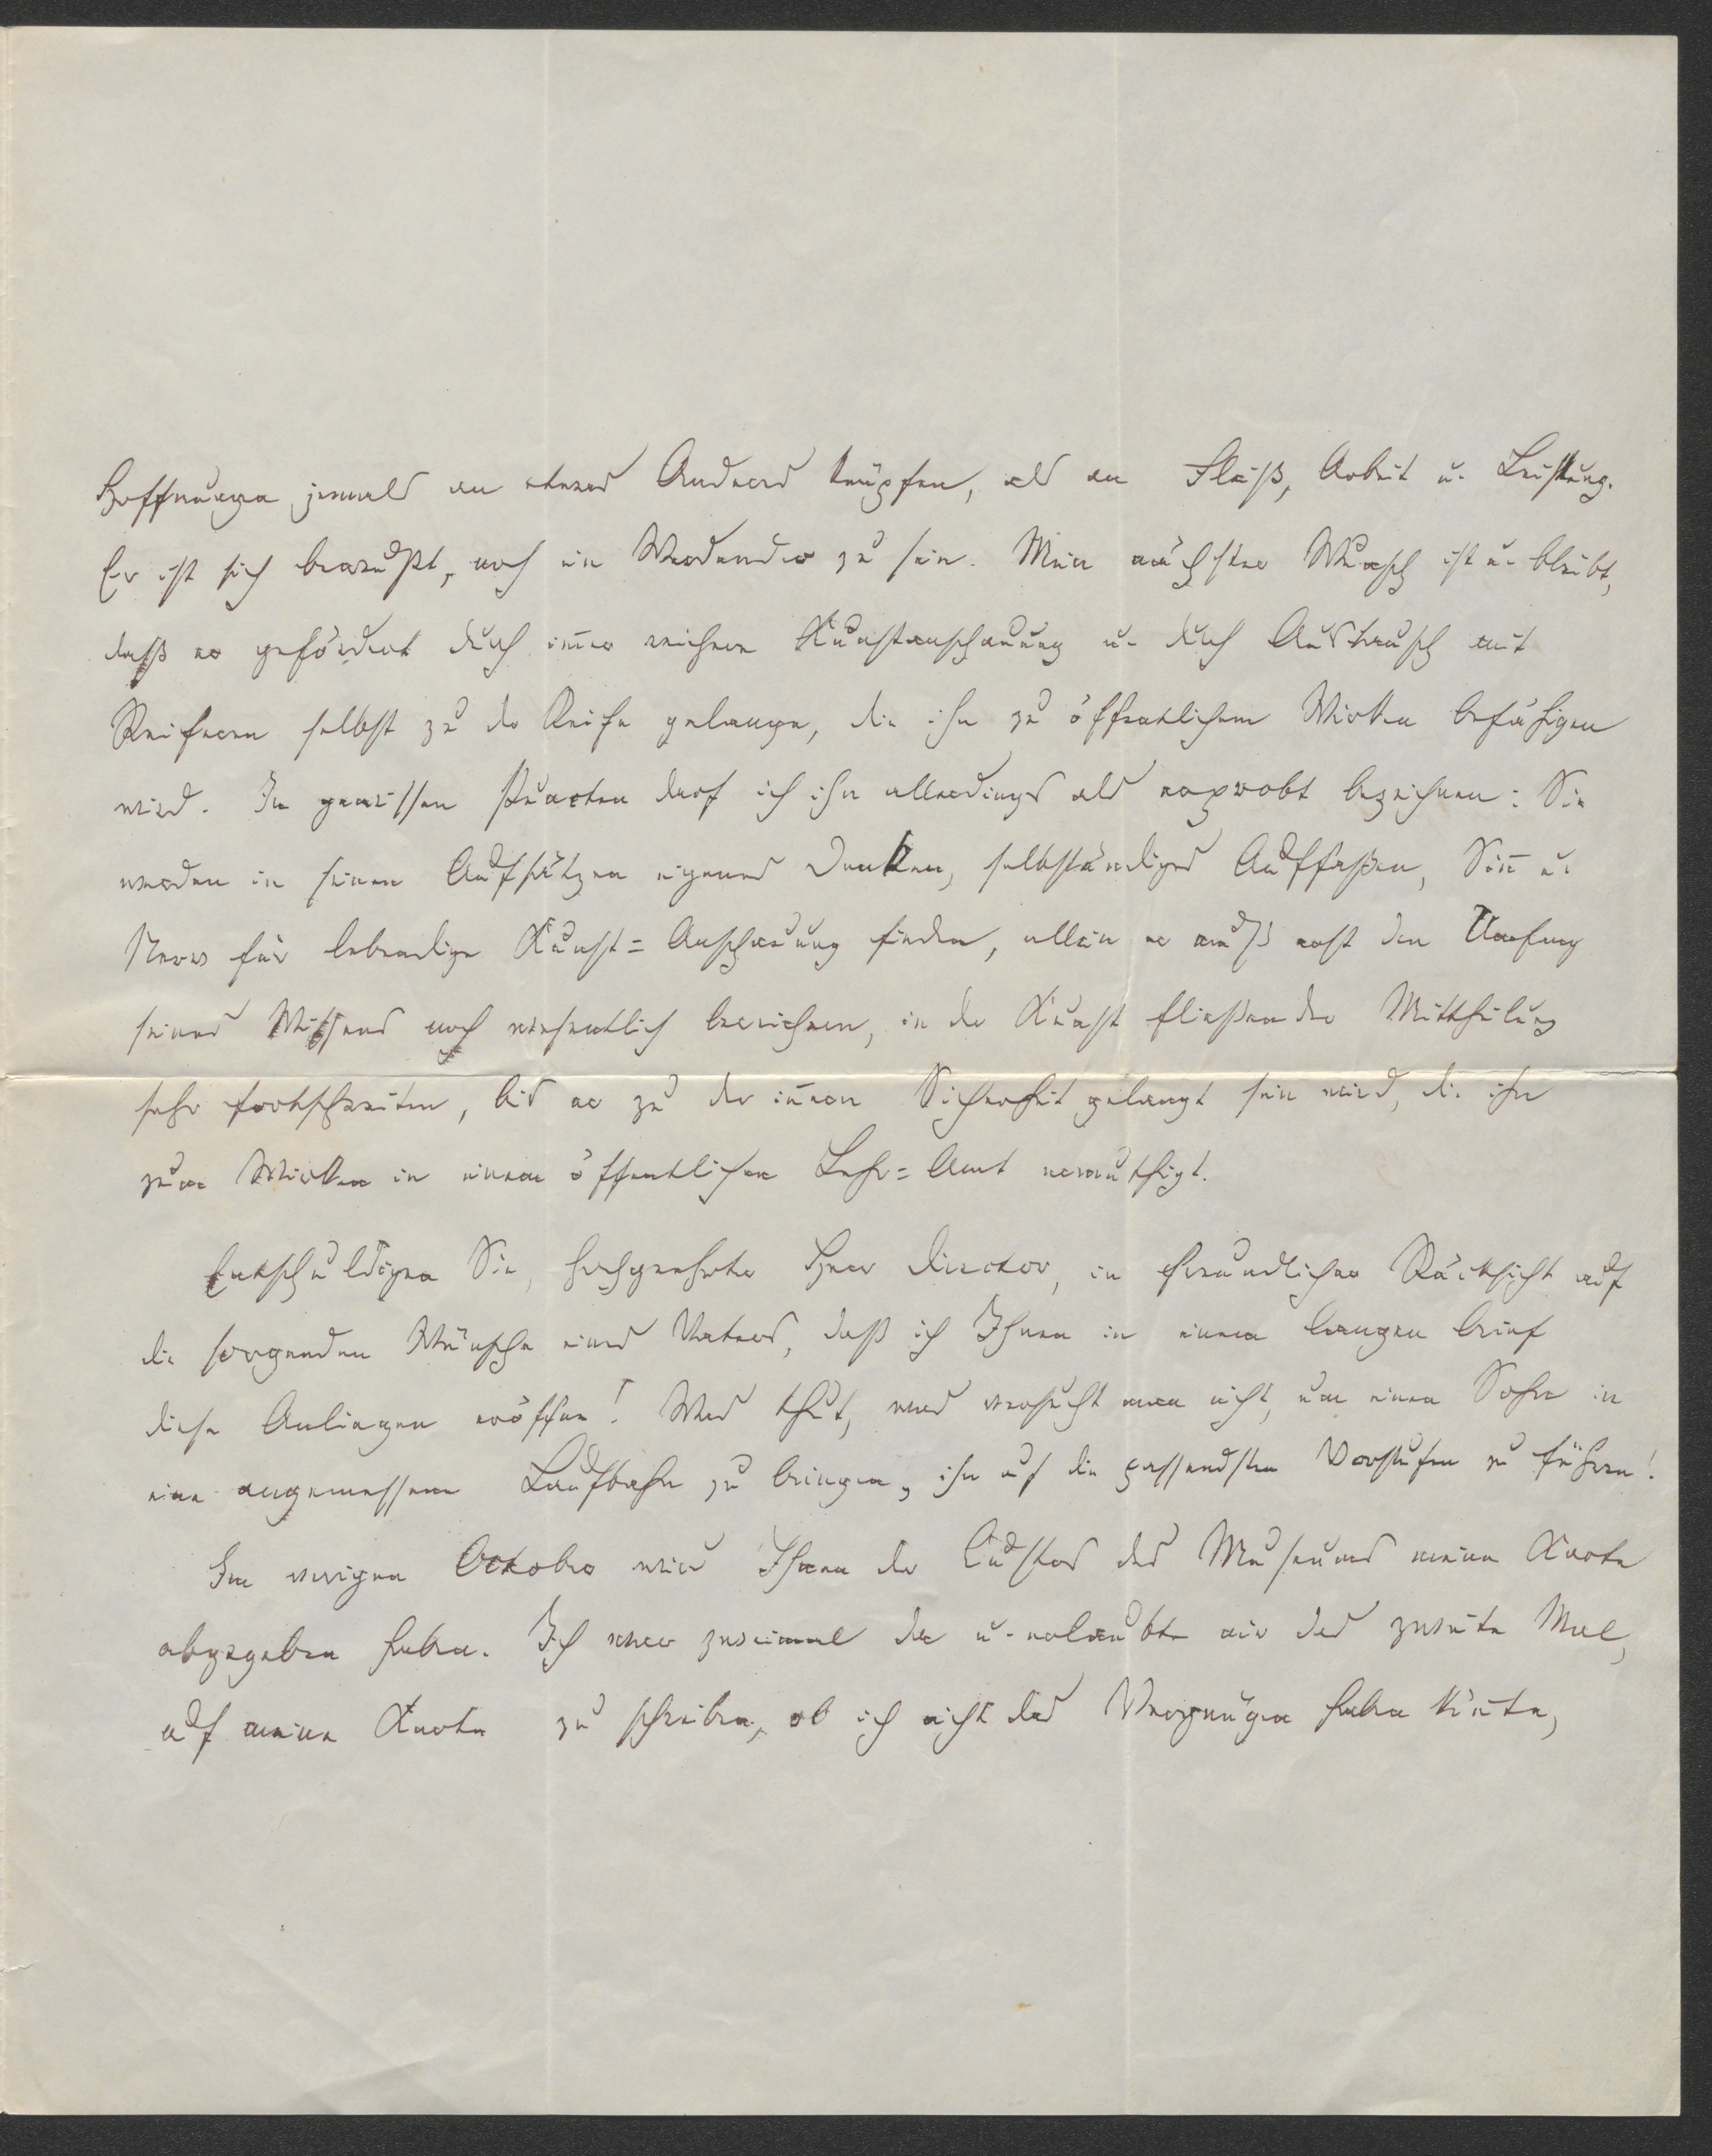 Hoffnungen jemals an etwas Anderes knüpfen, als an Fleiß, Arbeit u. Leistung.
Er ist sich bewußt, noch ein Werdender zu sein. Mein nächster Wunsch ist u. bleibt,
daß er gefördert durch im̅er reichere Kunstanschauung u. durch Austausch mit
Reiferen selbst zu der Reife gelange, die ihn zu öffentlichem Wirken befähigen
wird. In gewissen Puncten darf ich ihn allerdings als erprobt bezeichnen: Sie
werden in seinen Aufsätzen eigenes Denken, selbständiges Auffaßen, Sin̅ u.
Nerv für lebendige Kunst=Anschauung finden, allein er muß erst den Umfang
seines Wissens noch wesentlich bereichern, in der Kunst fließender Mittheilung
sehr fortschreiten, bis er zu der in̅eren Sicherheit gelangt sein wird, die ihn
zum Wirken in einem öffentlichen Lehr=Amt ermuthigt.
Entschuldigen Sie, hochgeehrter Herr Director, in freundlicher Rücksicht auf
die sorgenden Wünsche eines Vaters, daß ich Ihnen in einem langen Brief
diese Anliegen eröffne! Was thut, was versucht man nicht, um einen Sohn in
eine angemessene Laufbahn zu bringen, ihn auf die passendsten Vorstufen zu führen!
Im vorigen October wird Ihnen der Custos des Museums meine Karte
abgegeben haben. Ich war zweimal da u. erlaubte mir das zweite Mal,
auf meine Karte zu schreiben, ob ich nicht das Vergnügen haben kön̅te,